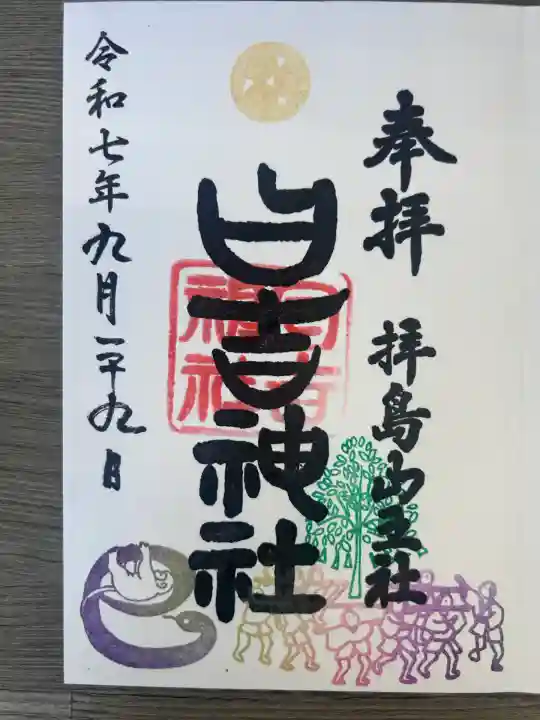 奉拝 拝島山王社
日吉神社
日吉神社
令和七年九月二十九日